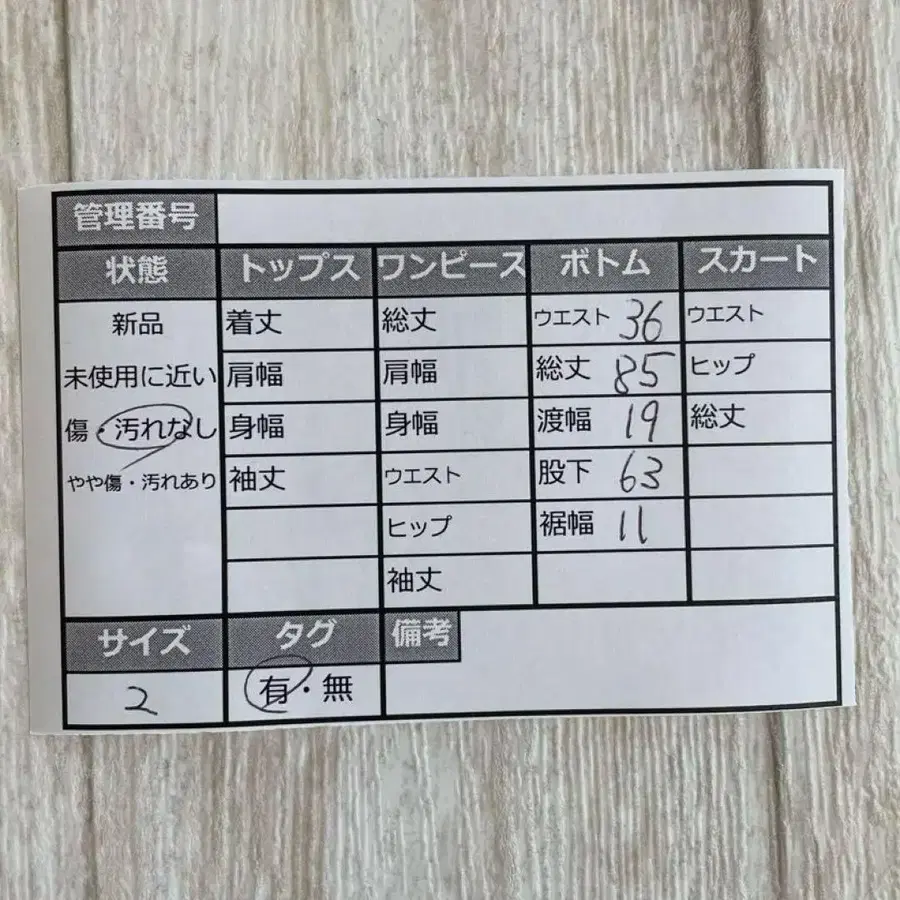 管理番号
状態 トップス ワンピース ボトム スカート
新品 着丈 総丈 ウエスト 36 ウエスト
未使用に近い 肩幅 肩幅 総丈 85 ヒップ
傷・汚れなし 身幅 身幅 渡幅 19 総丈
やや傷・汚れあり 袖丈 ウエスト 股下 63
ヒップ 裾幅 11
袖丈
サイズ タグ 備考
2 有・無